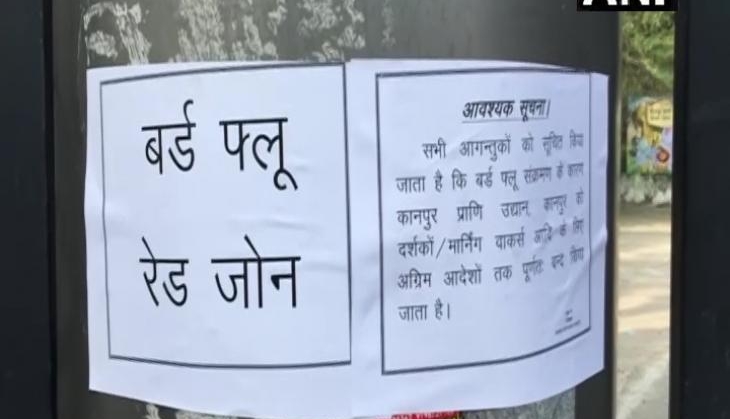 ANI
बर्ड फ्लू
रेड जोन
आवश्यक सूचना।
सभी आगन्तुकों को सूचित किया
जाता है कि बर्ड फ्लू संक्रमण के कारण
कानपुर प्राणि उद्यान, कानपुर को
दर्शकों/मार्निंग वाकर्स आदि के लिए
अग्रिम आदेशों तक पूर्णतः बन्द किया
जाता है।